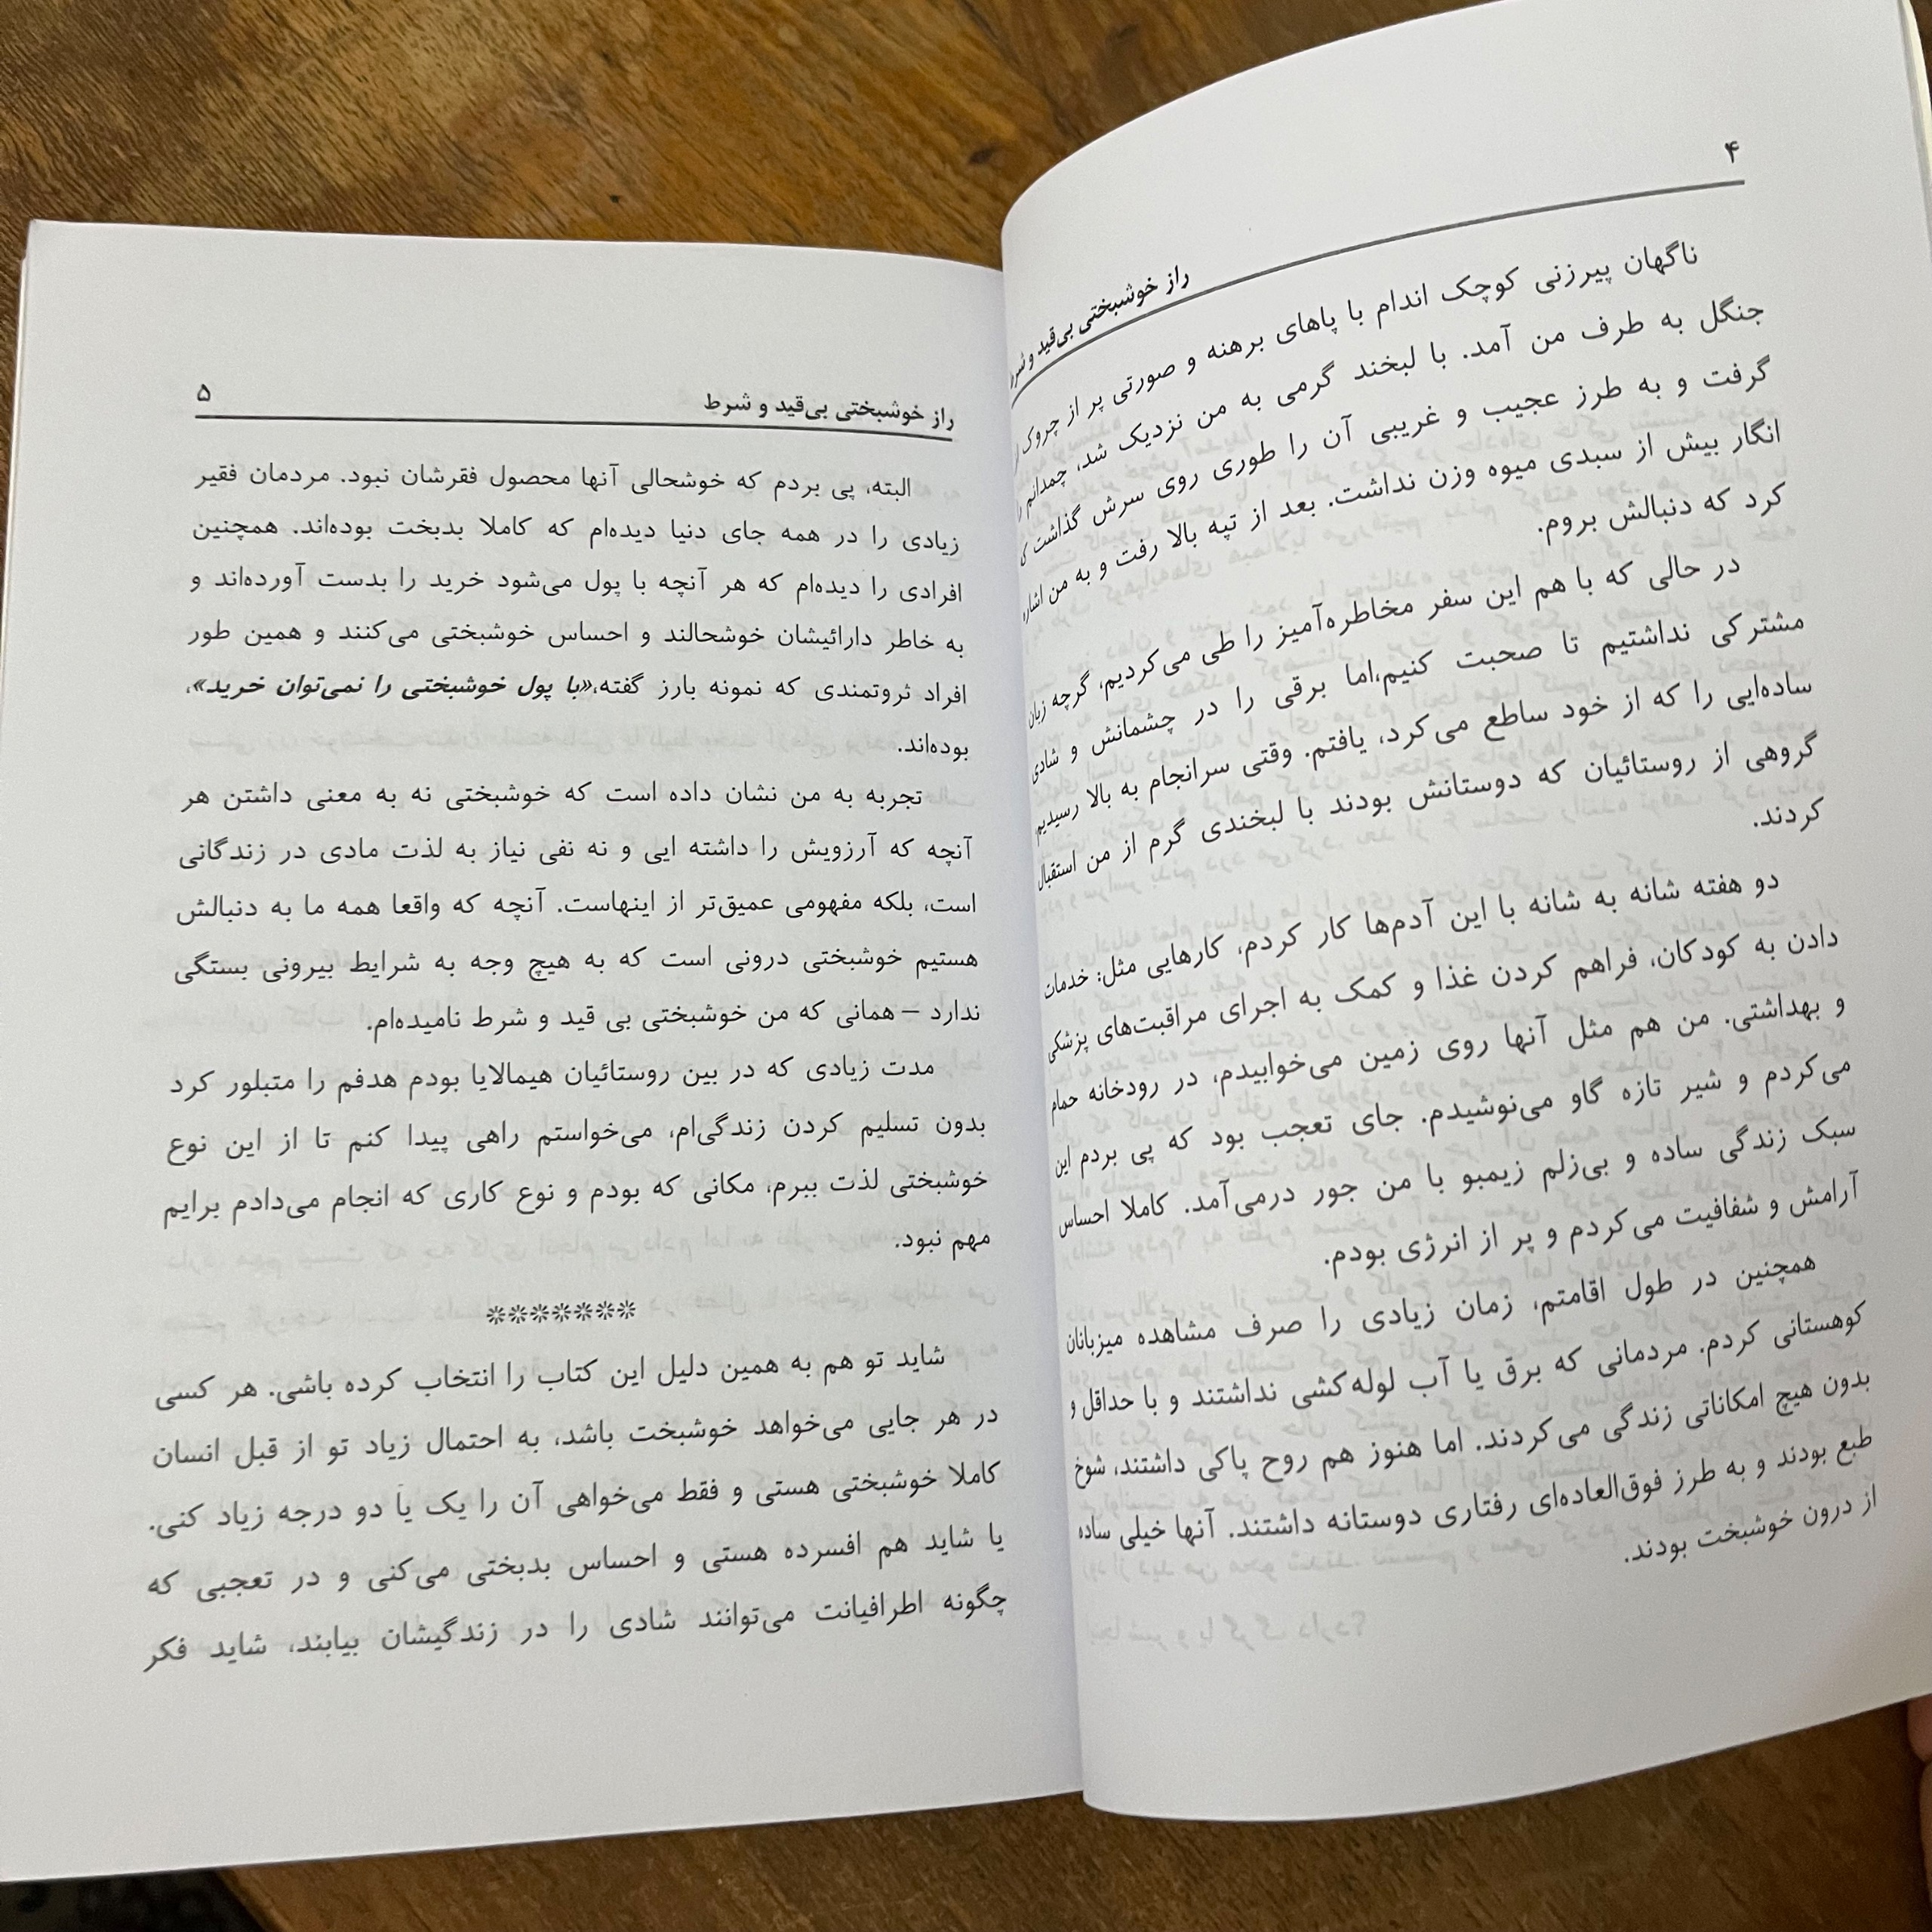 ۴
راز خوشبختی بی‌قید و شرط
ناگهان پیرزنی کوچک اندام با پاهای برهنه و صورتی پر از چروک
جنگل به طرف من آمد. با لبخند گرمی به من نزدیک شد، چمدانم
گرفت و به طرز عجیب و غریبی آن را طوری روی سرش گذاشت
انگار بیش از سبدی میوه وزن نداشت. بعد از تپه بالا رفت و به من اشاره
کرد که دنبالش بروم.
در حالی که با هم این سفر مخاطره‌آمیز را طی می‌کردیم، گرچه زبان
مشترکی نداشتیم تا صحبت کنیم،اما برقی را در چشمانش و شادی
ساده‌ایی را که از خود ساطع می‌کرد، یافتم. وقتی سرانجام به بالا رسیدیم،
گروهی از روستائیان که دوستانش بودند با لبخندی گرم از من استقبال
کردند.
دو هفته شانه به شانه با این آدم‌ها کار کردم، کارهایی مثل: خدمات
دادن به کودکان، فراهم کردن غذا و کمک به اجرای مراقبت‌های پزشکی
و بهداشتی. من هم مثل آنها روی زمین می‌خوابیدم، در رودخانه حمام
می‌کردم و شیر تازه گاو می‌نوشیدم. جای تعجب بود که پی بردم این
سبک زندگی ساده و بی‌زلم زیمبو با من جور درمی‌آمد. کاملا احساس
آرامش و شفافیت می‌کردم و پر از انرژی بودم.
همچنین در طول اقامتم، زمان زیادی را صرف مشاهده میزبانان
کوهستانی کردم. مردمانی که برق یا آب لوله‌کشی نداشتند و با حداقل و
بدون هیچ امکاناتی زندگی می‌کردند. اما هنوز هم روح پاکی داشتند، شوخ
طبع بودند و به طرز فوق‌العاده‌ای رفتاری دوستانه داشتند. آنها خیلی ساده
از درون خوشبخت بودند.
راز خوشبختی بی‌قید و شرط
۵
البته، پی بردم که خوشحالی آنها محصول فقرشان نبود. مردمان فقیر
زیادی را در همه جای دنیا دیده‌ام که کاملا بدبخت بوده‌اند. همچنین
افرادی را دیده‌ام که هر آنچه با پول می‌شود خرید را بدست آورده‌اند و
به خاطر دارائیشان خوشحالند و احساس خوشبختی می‌کنند و همین طور
افراد ثروتمندی که نمونه بارز گفته،«با پول خوشبختی را نمی‌توان خرید»،
بوده‌اند.
تجربه به من نشان داده است که خوشبختی نه به معنی داشتن هر
آنچه که آرزویش را داشته ایی و نه نفی نیاز به لذت مادی در زندگانی
است، بلکه مفهومی عمیق‌تر از اینهاست. آنچه که واقعا همه ما به دنبالش
هستیم خوشبختی درونی است که به هیچ وجه به شرایط بیرونی بستگی
ندارد – همانی که من خوشبختی بی قید و شرط نامیده‌ام.
مدت زیادی که در بین روستائیان هیمالایا بودم هدفم را متبلور کرد
بدون تسلیم کردن زندگی‌ام، می‌خواستم راهی پیدا کنم تا از این نوع
خوشبختی لذت ببرم، مکانی که بودم و نوع کاری که انجام می‌دادم برایم
مهم نبود.
*******
شاید تو هم به همین دلیل این کتاب را انتخاب کرده باشی. هر کسی
در هر جایی می‌خواهد خوشبخت باشد، به احتمال زیاد تو از قبل انسان
کاملا خوشبختی هستی و فقط می‌خواهی آن را یک یا دو درجه زیاد کنی.
یا شاید هم افسرده هستی و احساس بدبختی می‌کنی و در تعجبی که
چگونه اطرافیانت می‌توانند شادی را در زندگیشان بیابند، شاید فکر